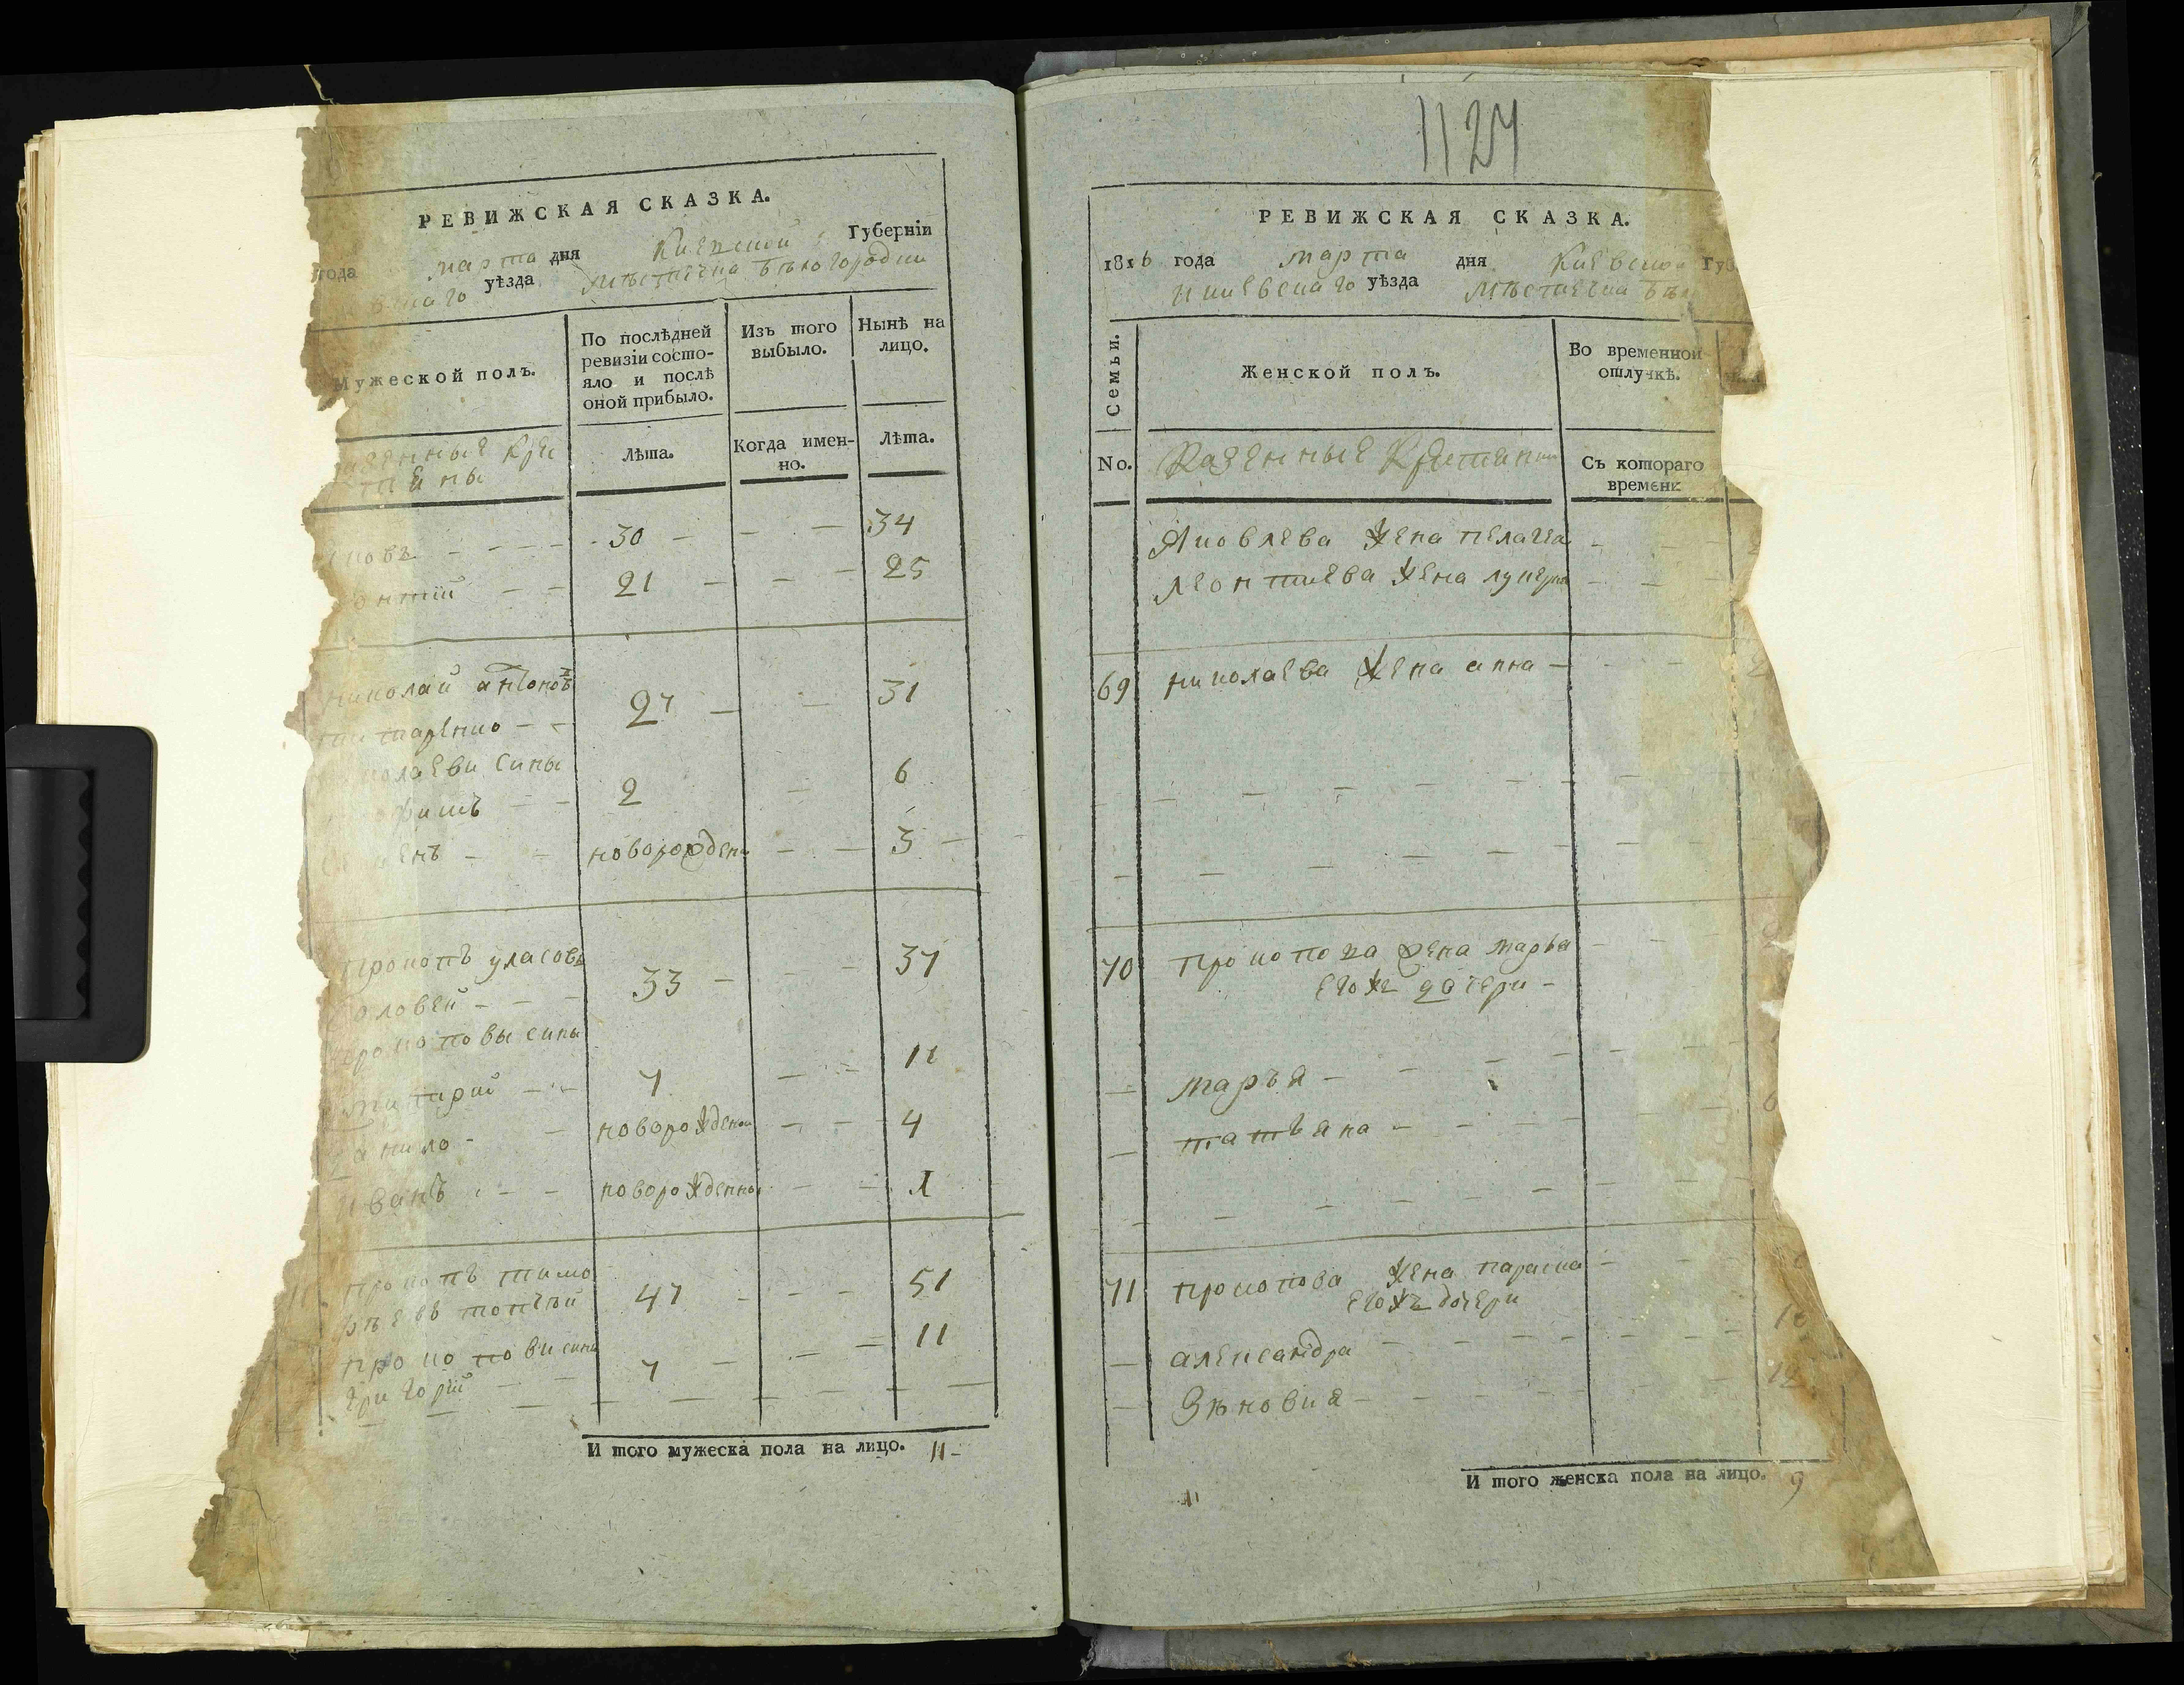 РЕВИЖСКАЯ СКАЗКА.
года марта дня Киевской Губерніи
уѣзда мѣстечка бѣлогородки
Мужеской полъ.
По послѣдней ревизіи состояло и послѣ оной прибыло.
Изъ того выбыло.
Нынѣ на лицо.
Лѣта.
Когда именно.
Лѣта.
30 - - - 34
онтій - - 21 - - - 25
николай антоновъ
27 - - 31
сины
2 - 6
новорожден - - 3 -
Прокопъ уласовъ
33 - - - 37
прокоповы сины
митрій - - 7 - - 11
данило - - новорожденои - - 4
иванъ - - новорожденнои - - 1
прокопъ тимо
47 - - - 51
прокопови сини
григорій - - 7 - - - 11
И того мужеска пола на лицо. 11-
1124
РЕВИЖСКАЯ СКАЗКА.
1816 года марта дня Киевской Губ
Киевскаго уѣзда мѣстечка бѣл
Семьи.
Женской полъ.
Во временной отлучкѣ.
No.
Казенные
Съ котораго времени
Яковлева жена пелагея
леонтиева жена
69 николаева жена анна -
70 прокопова жена марья
егоже дочери -
марья -
татьяна -
71 прокопова жена параска -
егожъ дочери
александра 10
Зѣновия - 12
И того женска пола на лицо. 9